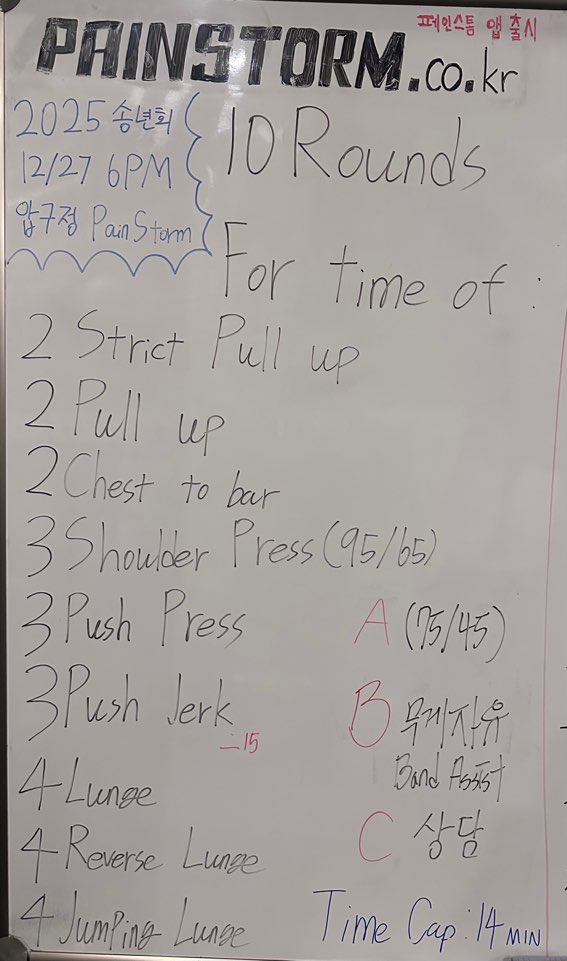 페인스톰 앱 출시
PAINSTORM.co.kr
2025 송년회
12/27 6PM
압구정 PainStorm
10 Rounds
For time of :
2 Strict Pull up
2 Pull up
2 Chest to bar
3 Shoulder Press (95/65)
3 Push Press
A (75/45)
3 Push Jerk
-15
B 무게자유
Band Assist
4 Lunge
C 상담
4 Reverse Lunge
4 Jumping Lunge
Time Cap : 14 MIN